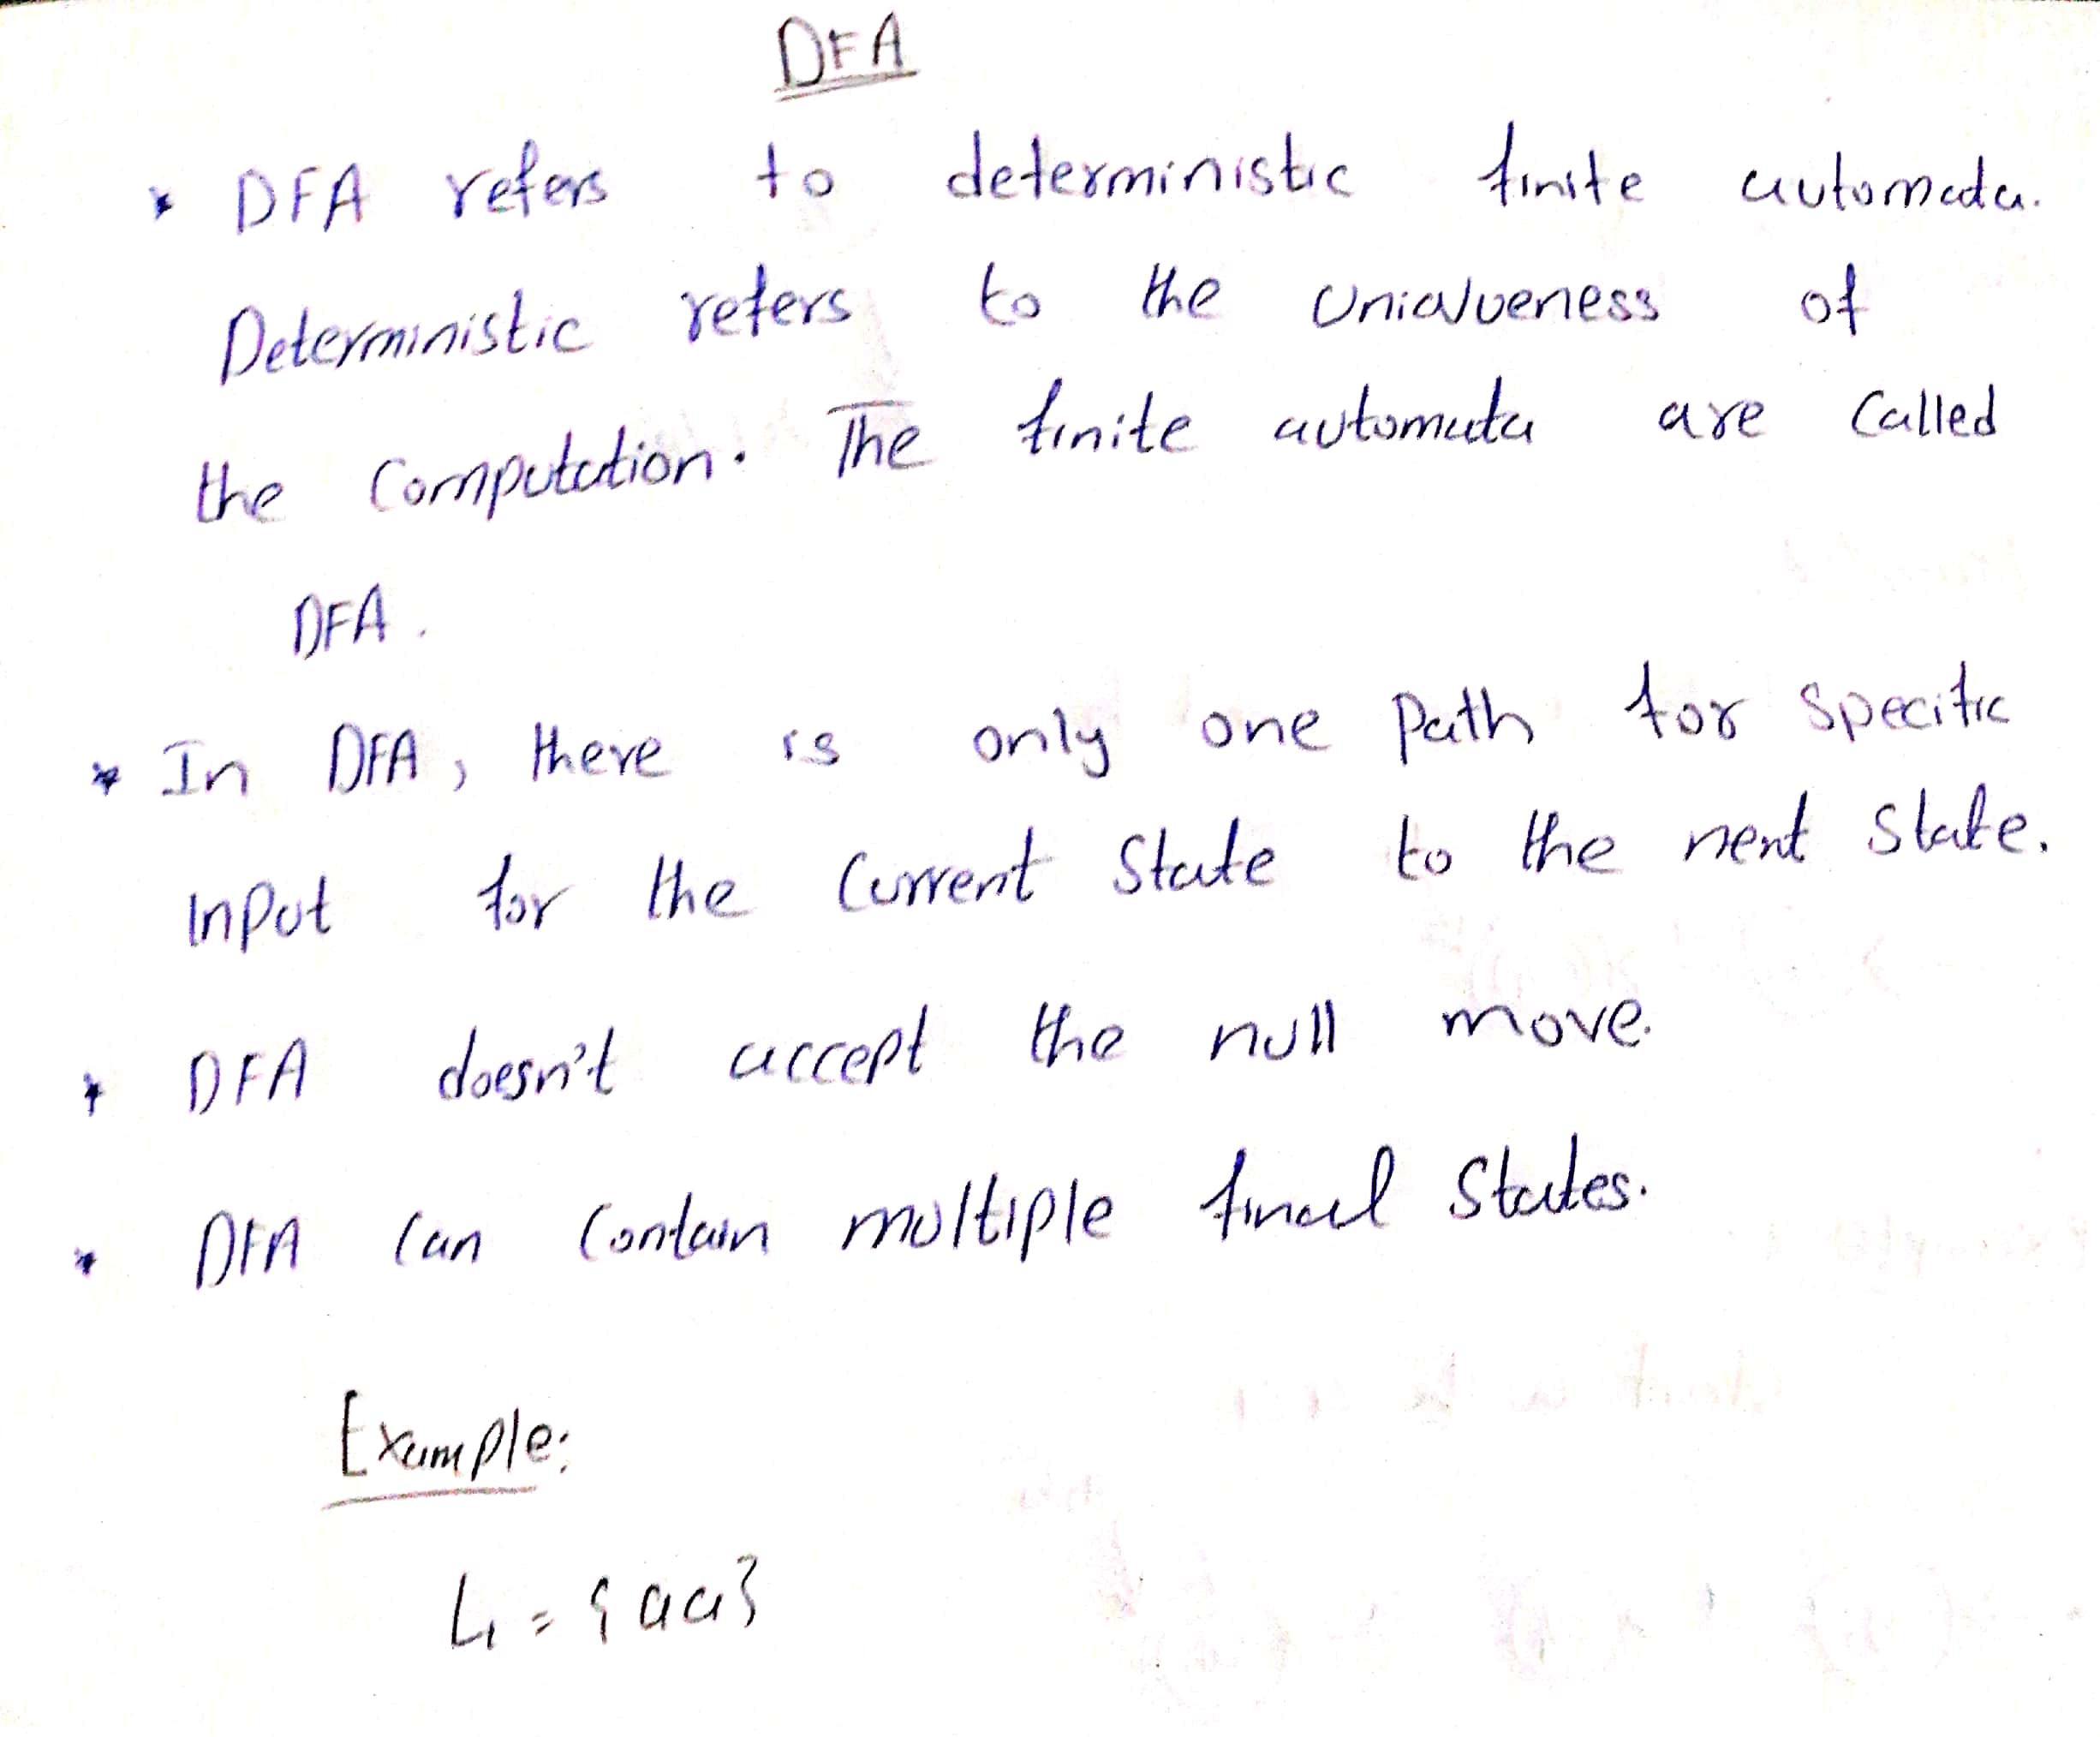 DFA
* DFA refers to deterministic finite automata.
Deterministic refers to the uniqueness of
the computation. The finite automata are called
DFA.
* In DFA, there is only one path for specific
input for the current state to the next state.
* DFA doesn't accept the null move.
* DFA can contain multiple final states.
Example:
L₁ = {aa}